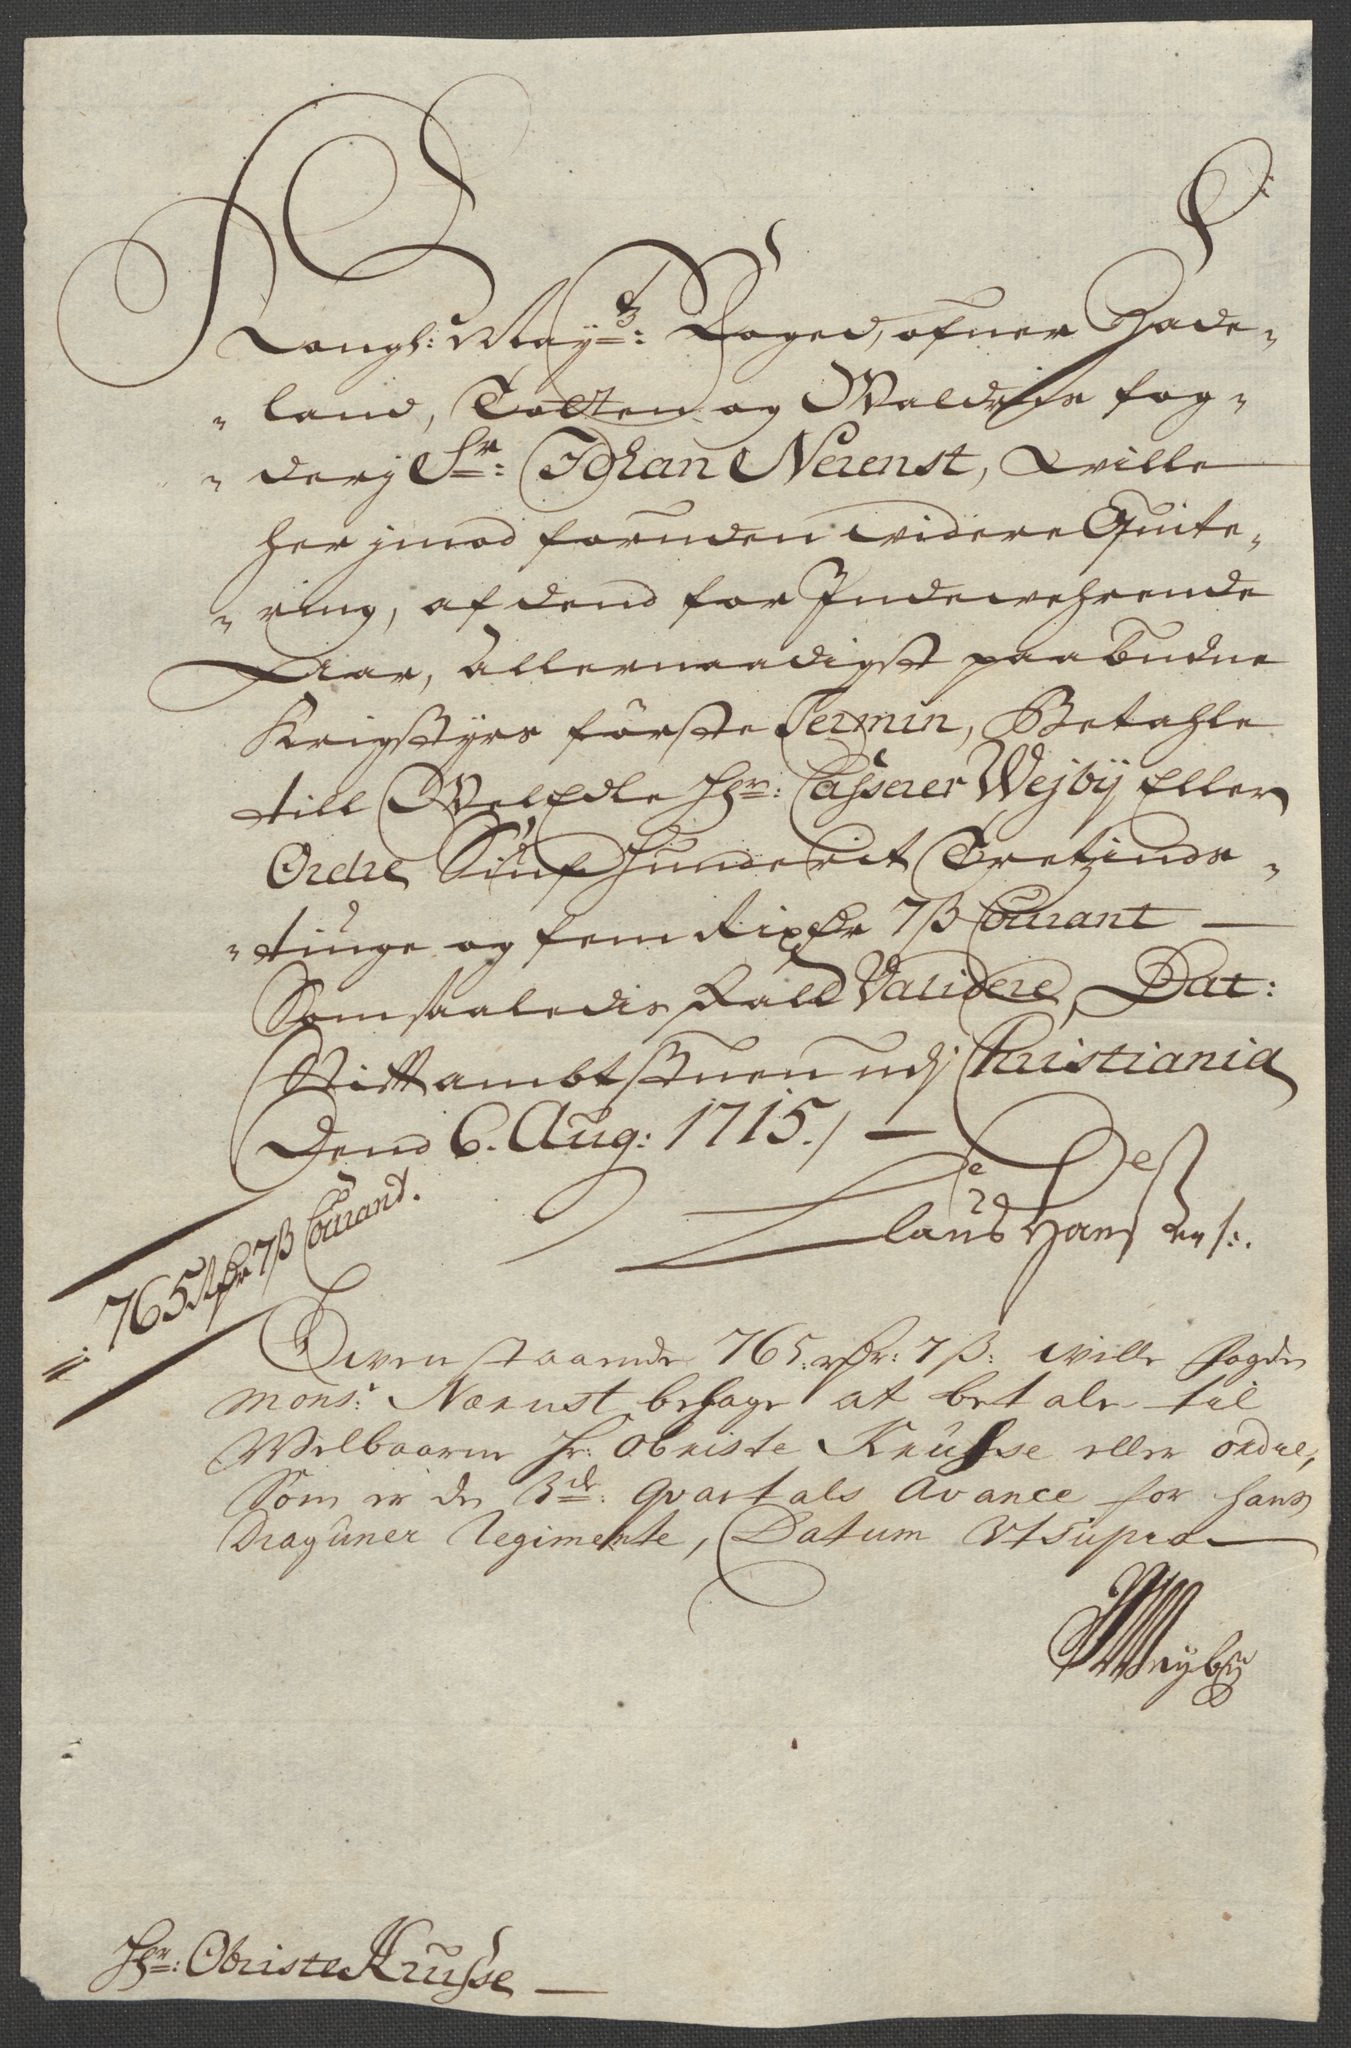 Kongl: May:ts: Foged, ofuer Hade-
land, Totten og Waldris fog-
derj Sr: Johan Nerenst, Wille
her jmod foruden widere Quite-
ring, af dend for Indewehrende
Aar, Allernaadigst paabudne
Krigstyrs förste Termin, Betahle
till WelEdle Hr: Casserer Wejbÿ Eller
Ordre Siuf Hunderit Tretzinds-
tiuge og fem Rixdr 7 ß Courant
Som saaledis skall Validere, Dat:
Stiftambtstuen udj Christiania
Dend 6. Aug: 1715./
Claus Hans
765 Rdr 7 ß Courant.
Ovenstaaende 765: rdr: 7 ß: wille fogden
Mons: Nærust behage at betale til
Welbaarne Hr: Obriste Krusse eller ordre,
Som er de 3de: Qvartals Avance for hans
Draguner Regimente, Datum Ut Supra
Weyby
Hr: Obriste Krusse